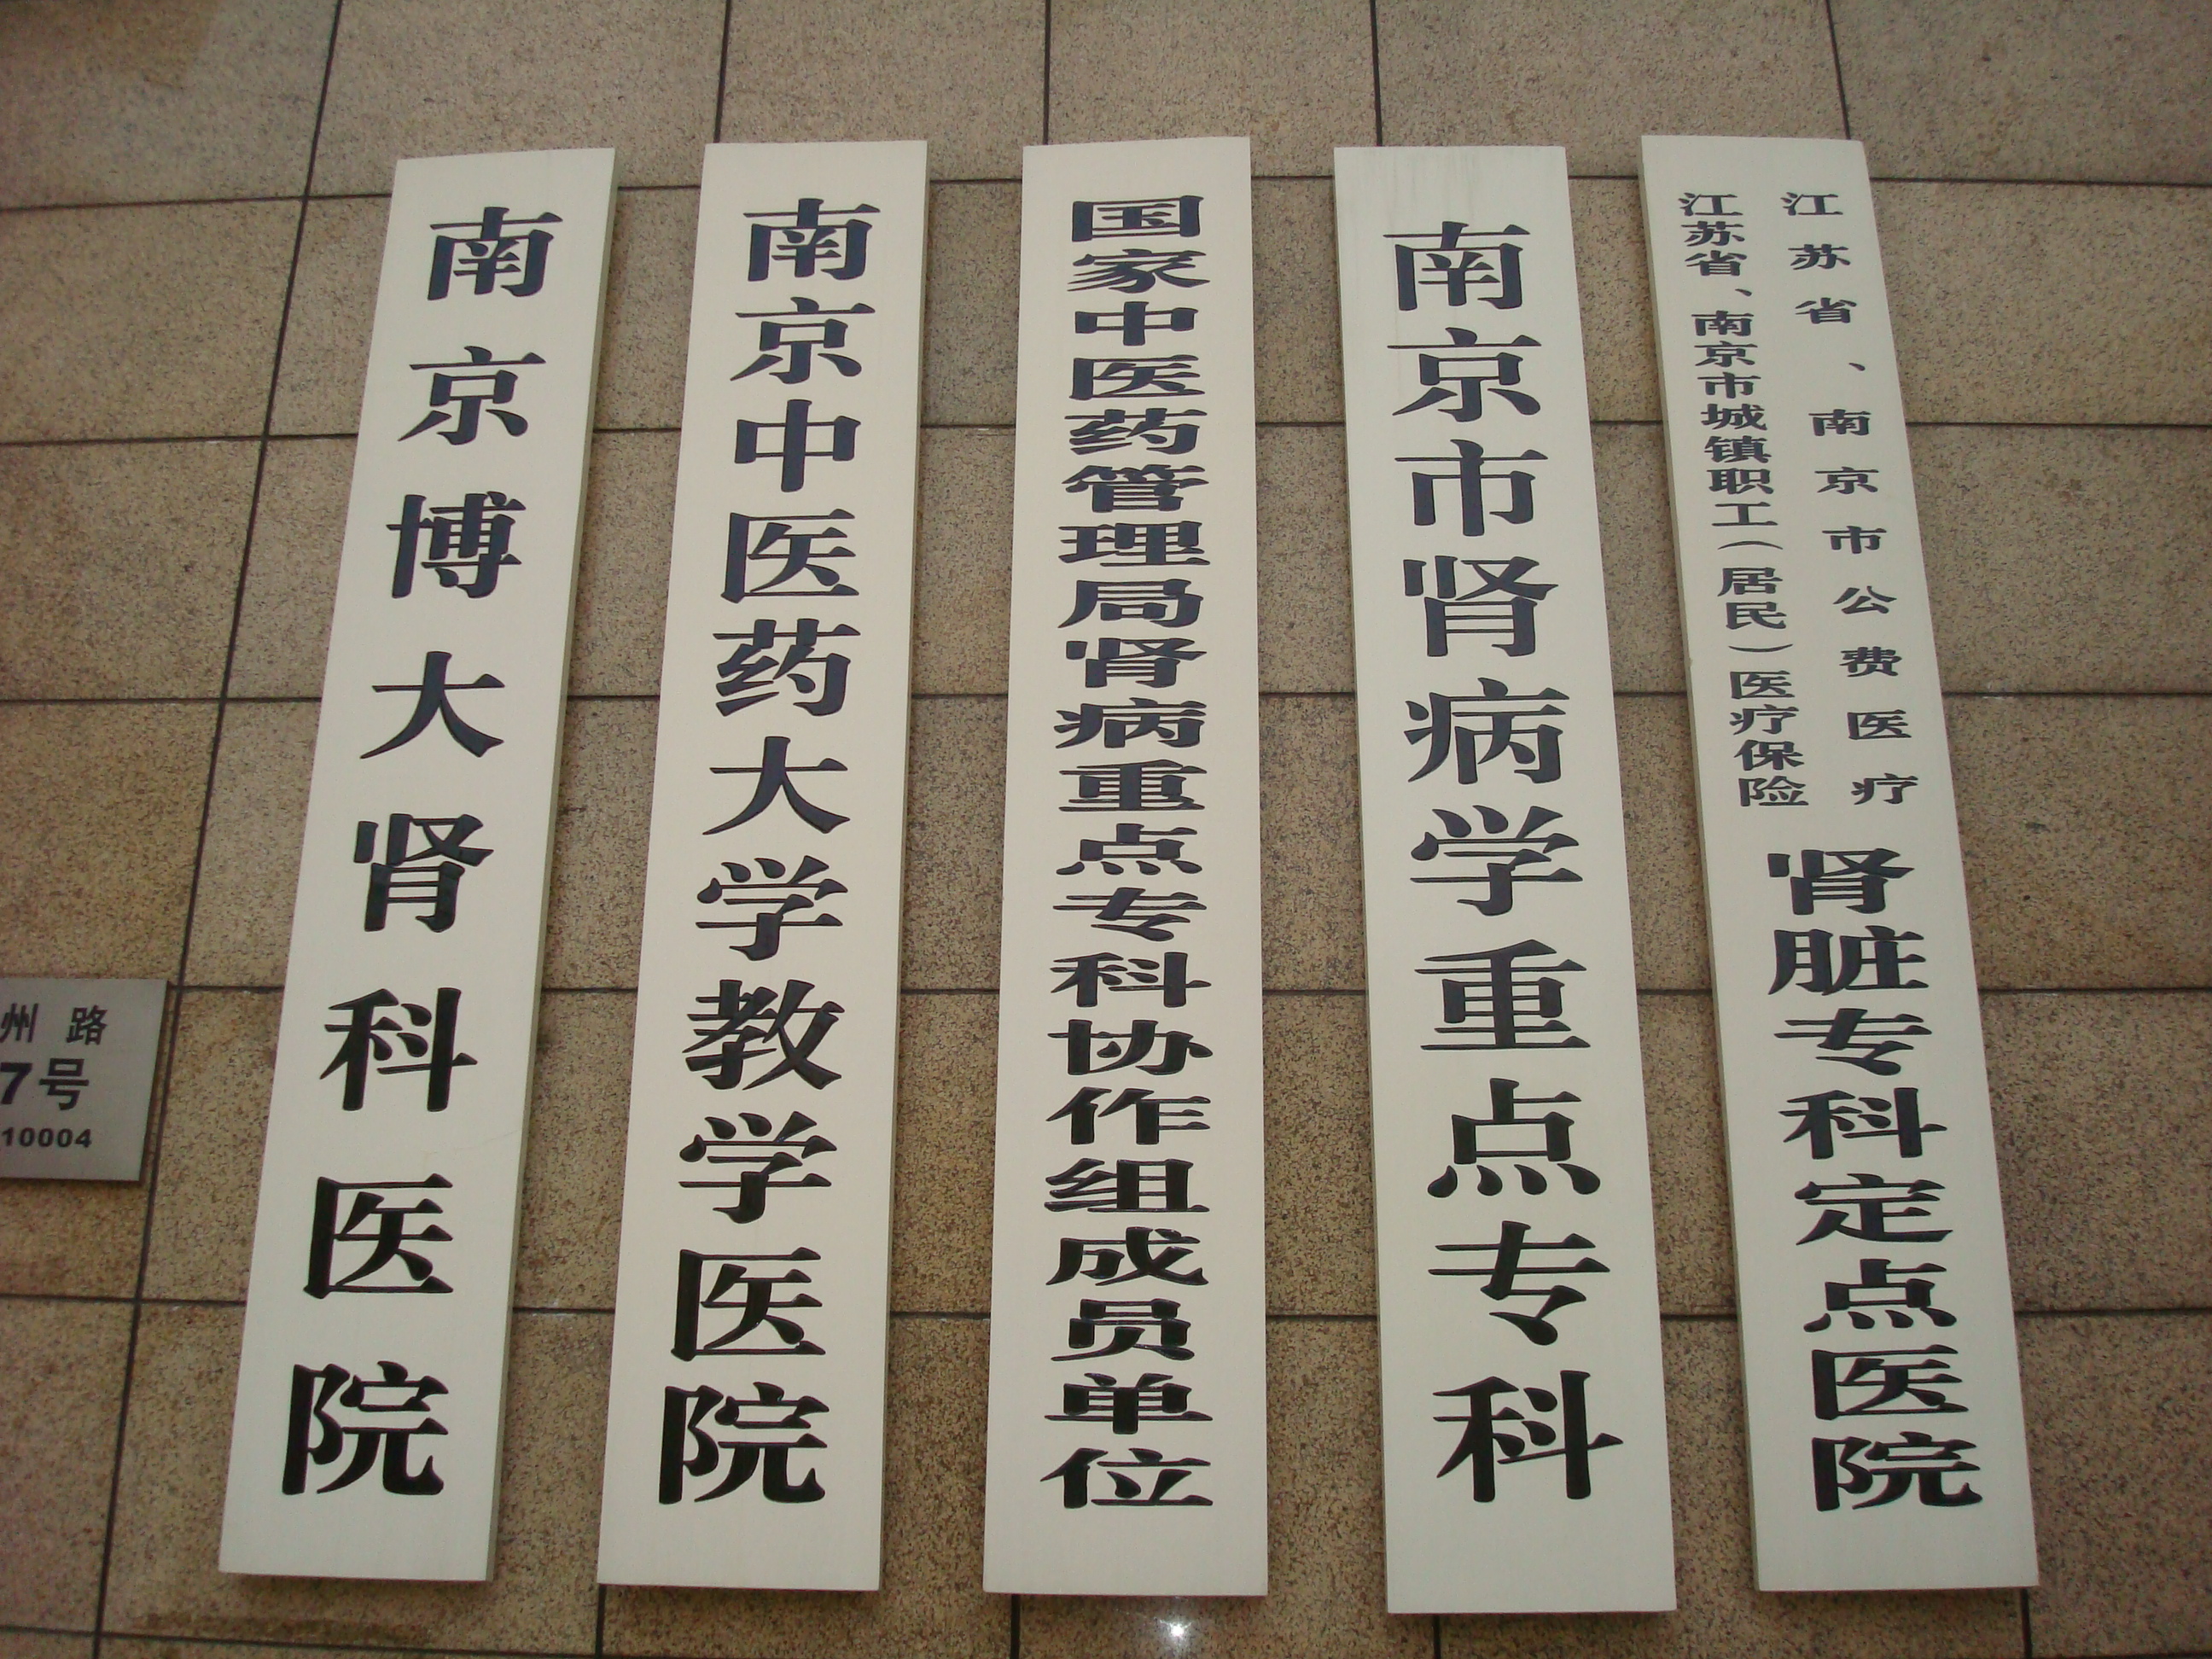 南京博大肾科医院
南京中医药大学教学医院
国家中医药管理局肾病重点专科协作组成员单位
南京市肾病学重点专科
江苏省、南京市公费医疗
江苏省、南京市城镇职工(居民)医疗保险
肾脏专科定点医院
州路
7号
10004